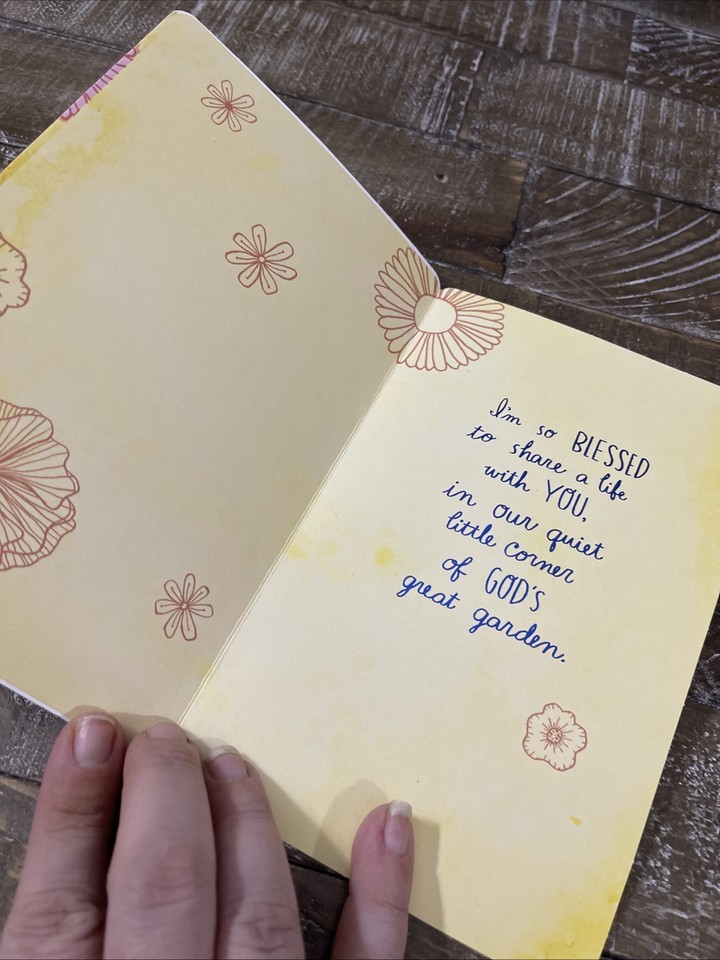 I'm so BLESSED
to share a life
with YOU,
in our quiet
little corner
of GOD'S
great garden.